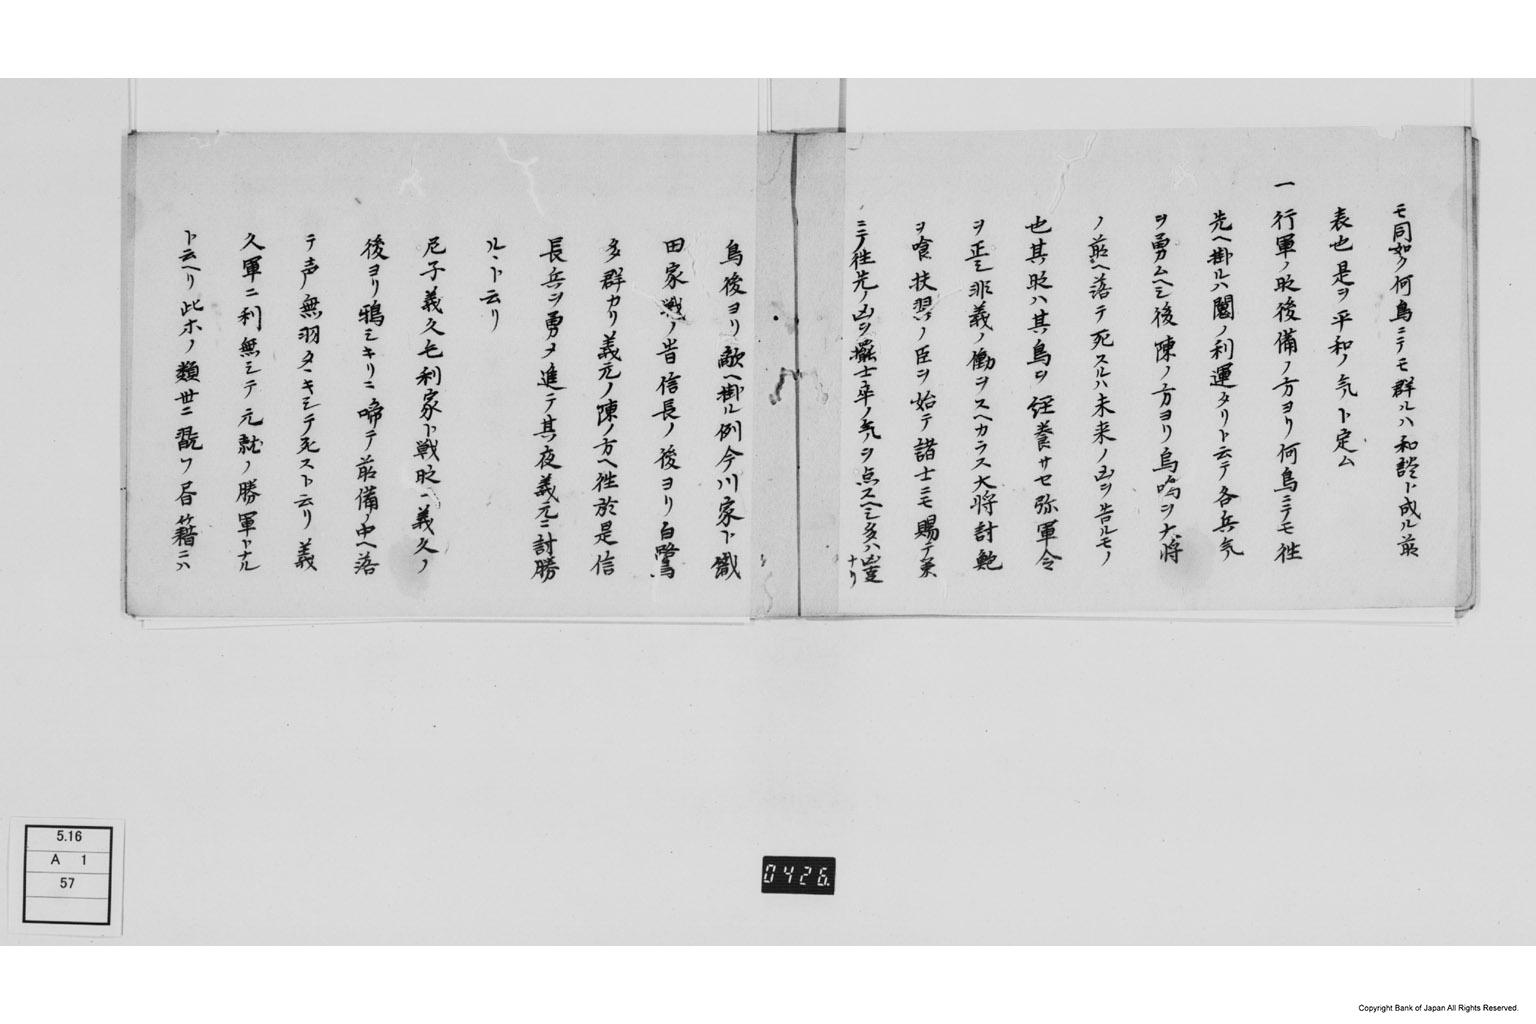 モ同如ク何鳥ニテモ群ルハ和談ト成ル前
表也是ヲ平和ノ気ト定ム
一行軍ノ時後備ノ方ヨリ何鳥ニテモ往
先ヘ掛ルハ闘ノ利運タリト云テ各兵気
ヲ勇ムヘシ後陳ノ方ヨリ烏鳴ヲ大将
ノ前ヘ落テ死スルハ未来ノ凶ヲ告ルモノ
也其時ハ其鳥ヲ経養サセ弥軍令
ヲ正シ非義ノ働ヲスヘカラス大将討鮑
ヲ喰扶翌ノ臣ヲ始テ諸士ニモ賜テ東
ニテ往先ノ凶ヲ攘士卒ノ気ヲ点スヘシ多ハ凶霊ナリ
鳥後ヨリ敵ヘ掛ル例今川家ト織
田家戦ノ旹信長ノ後ヨリ白鷺
多群カリ義元ノ陳ノ方ヘ往於是信
長兵ヲ勇メ進テ其夜義元ニ討勝
ルト云リ
尼子義久毛利家ト戦時ハ義久ノ
後ヨリ鴉シキリニ啼テ前備ノ中ヘ落
テ声無羽タヽキシテ死スト云リ義
久軍ニ利無シテ元就ノ勝軍トナル
ト云ヘリ此ホノ類世ニ翫フ昏籍ニハ
5.16
A 1
57
0426.
Copyright Bank of Japan All Rights Reserved.